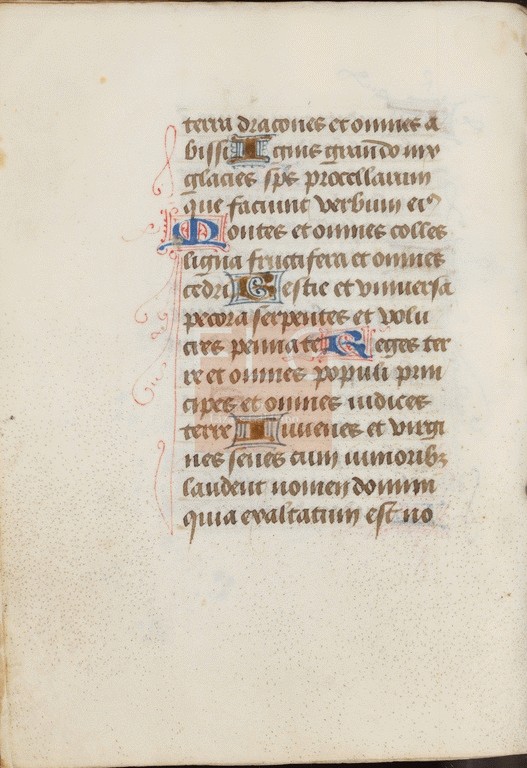 terra dracones et omnes a
bissi Ignis grando nix
glacies sps procellarum
que faciunt verbum eiꝰ
Montes et omnes colles
ligna fructifera et omnes
cedri Bestie et vniuersa
pecora serpentes et volu
cres pennate Reges ter
re et omnes populi prin
cipes et omnes iudices
terre Iuuenes et virgi
nes senes cum iunioribꝫ
laudent nomen domini
quia exaltatum est no